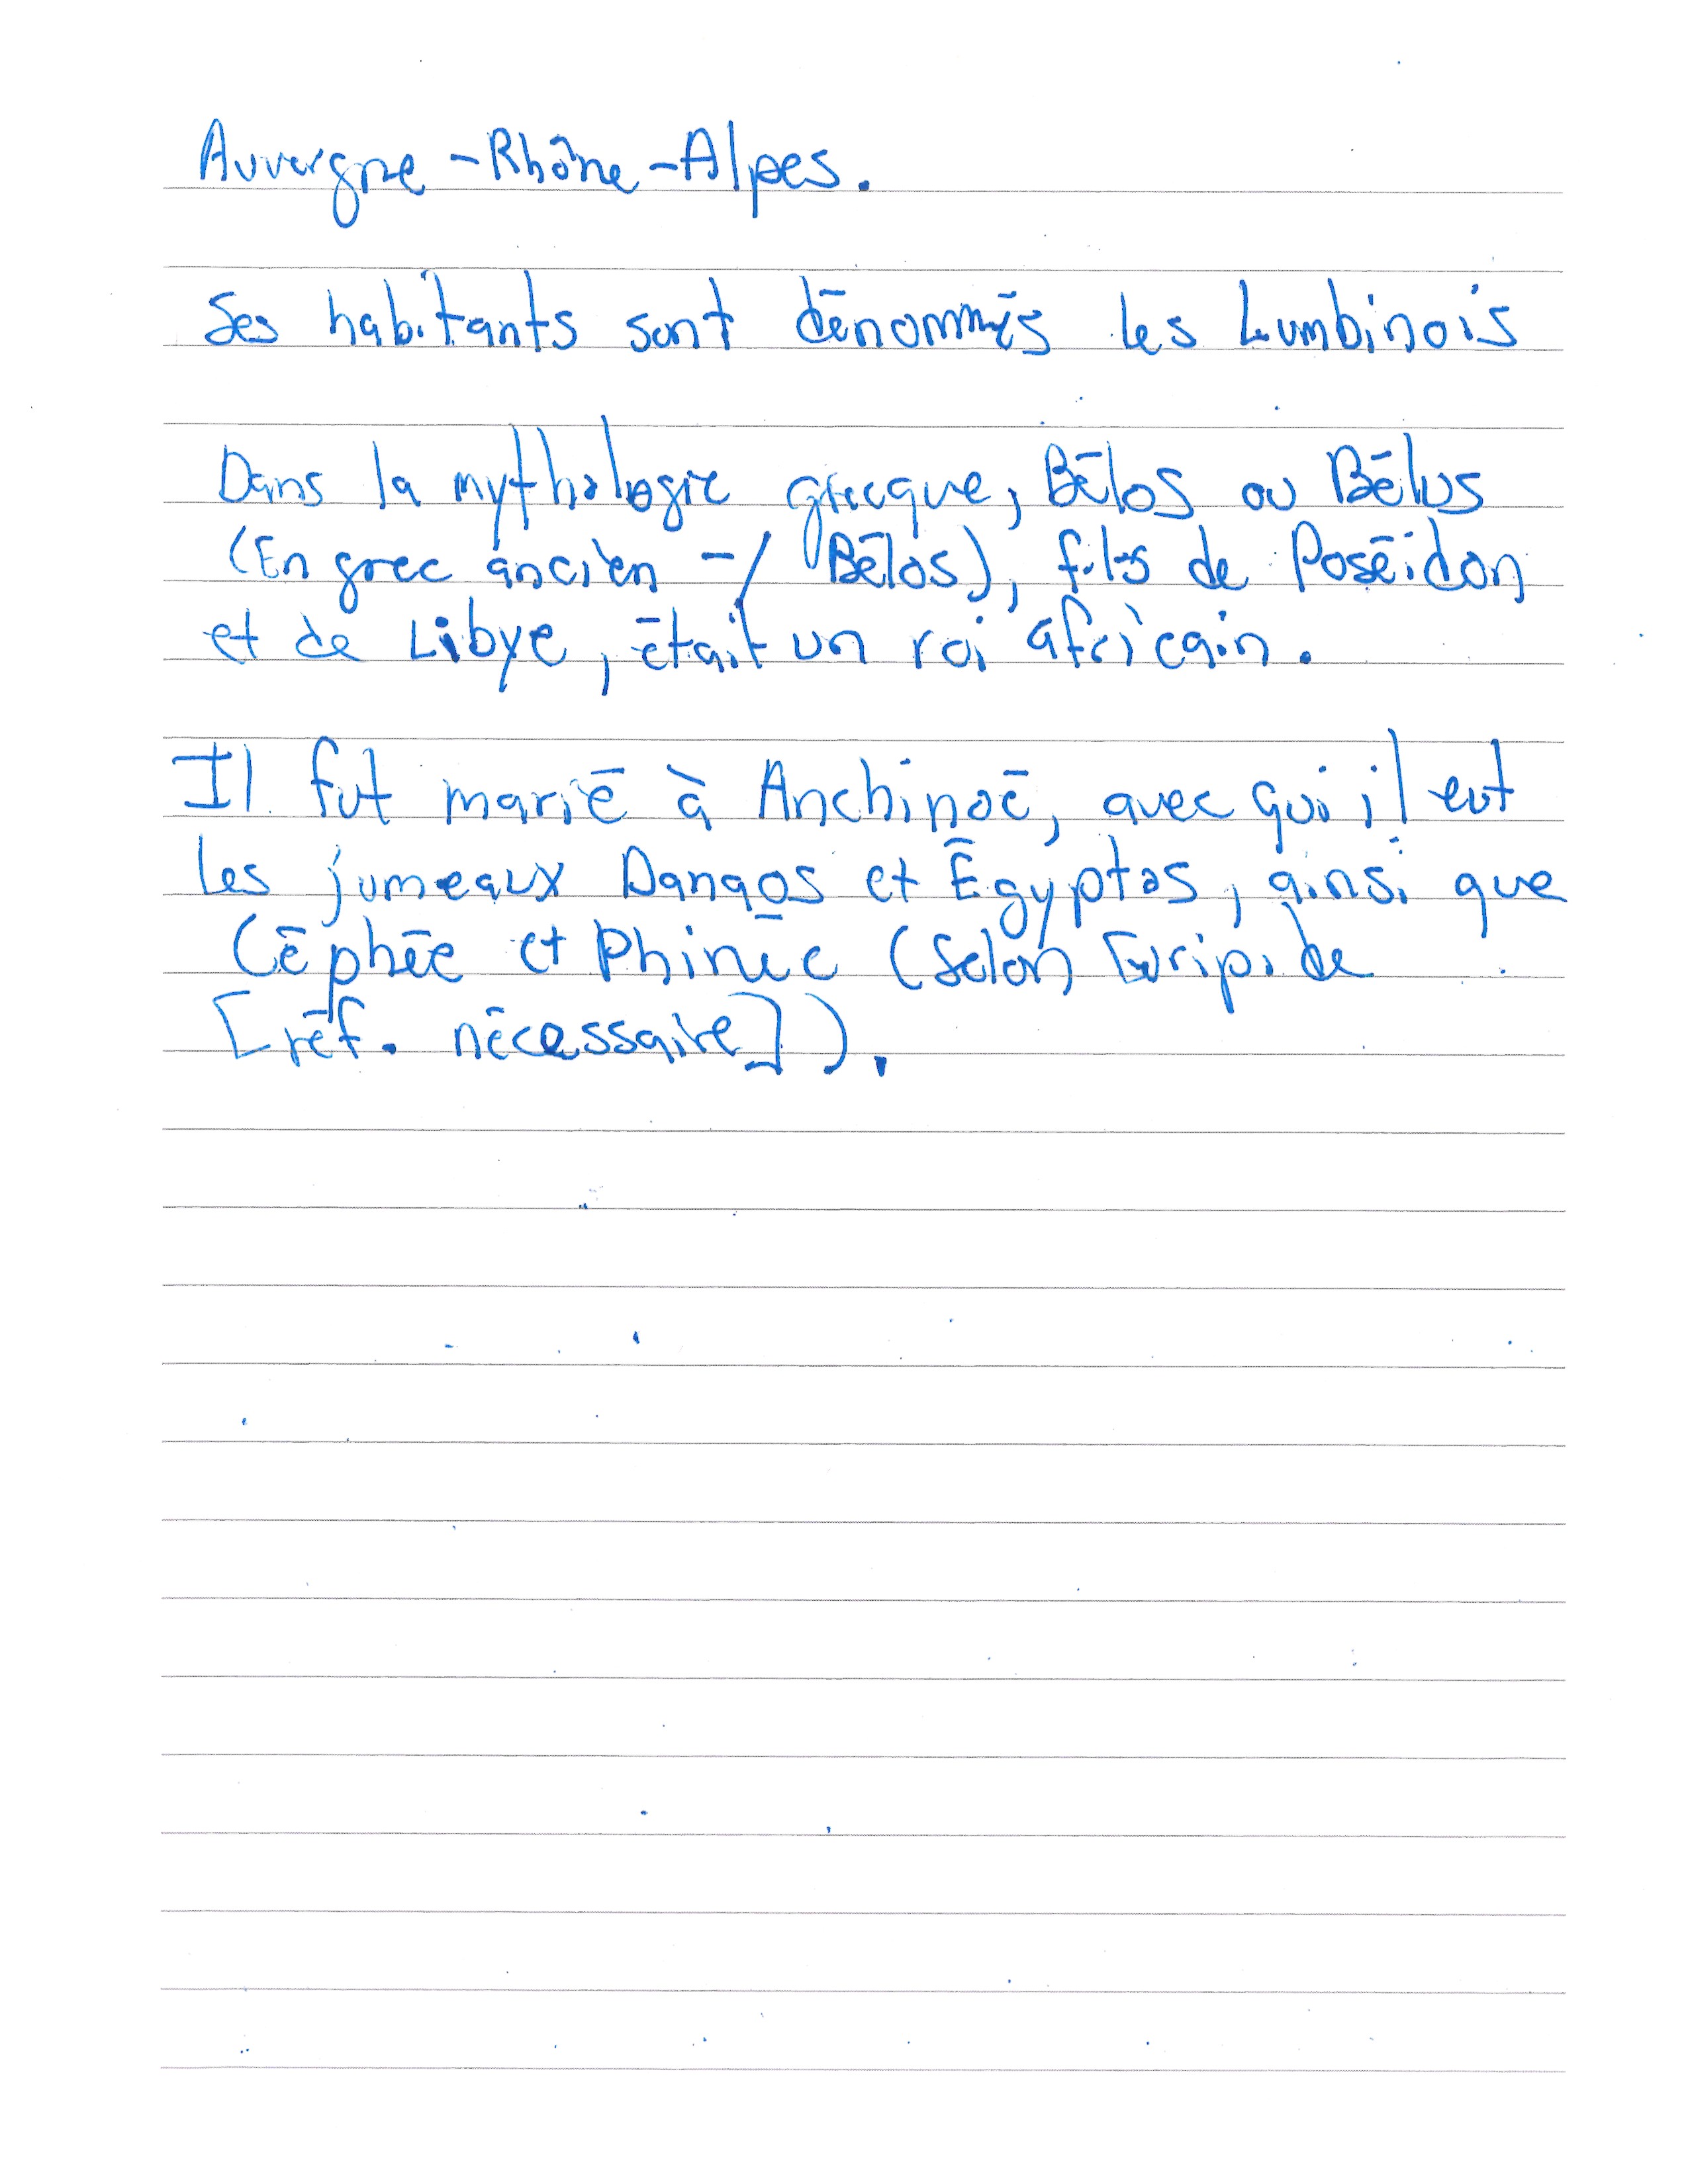 Auvergne-Rhône-Alpes.
Ses habitants sont dénommés les Lumbinois
Dans la mythologie grecque, Bélos ou Bélus
(En grec ancien -/ Bēlos), fils de Poséidon
et de Libye, était un roi africain.
Il fut marié à Anchinoé, avec qui il eut
les jumeaux Danaos et Égyptos, ainsi que
Céphée et Phinée (selon Euripide
[réf. nécessaire]).